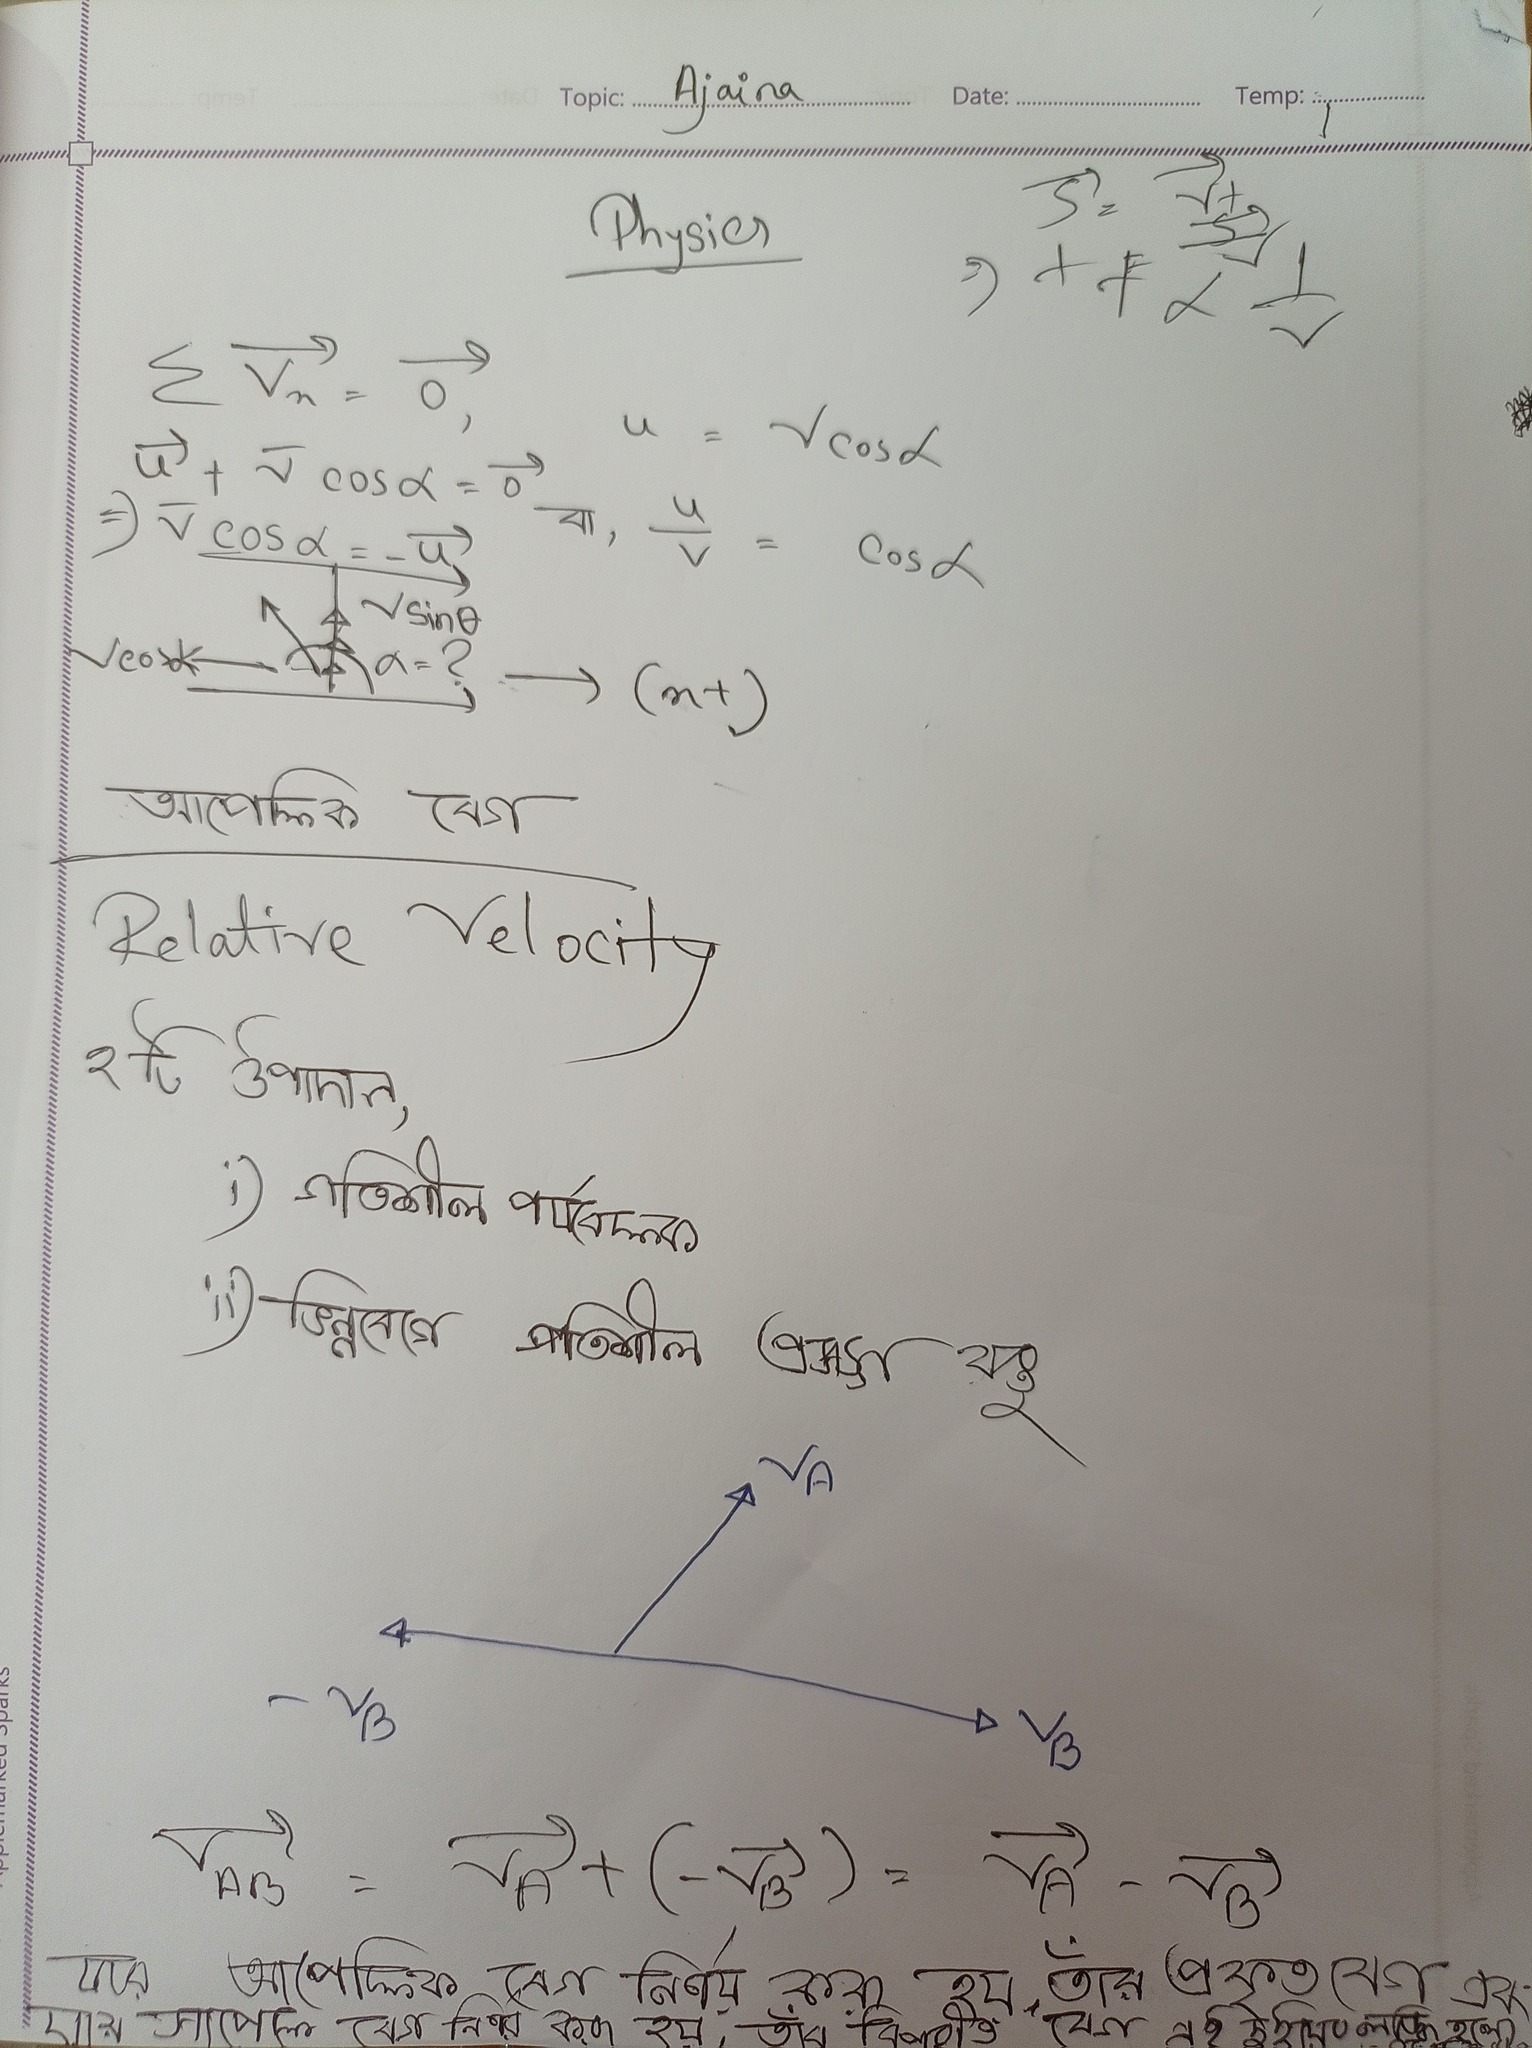 Topic: Ajaina Date: Temp:
Physics
S⃗ =
⇒ t ∝ 1/v
Σ V⃗x = 0⃗,
u = v cosα
u⃗ + v⃗ cosα = 0⃗
বা, u/v = cosα
⇒ v⃗ cosα = -u⃗
v sinθ
v cosα α = ? → (x+)
আপেক্ষিক বেগ
Relative Velocity
২টি উপাদান,
i) গতিশীল পর্যবেক্ষক
ii) ভিন্নবেগে গতিশীল বস্তু
VA
- VB
VB
V⃗AB = V⃗A + (-V⃗B) = V⃗A - V⃗B
যার আপেক্ষিক বেগ নির্ণয় করা হয়, তাঁর প্রকৃত বেগ এবং
যার সাপেক্ষে বেগ নির্ণয় করা হয়, তাঁর বিপরীত বেগ এই দুইয়ের লব্ধি হলো
Applemarked Sparks